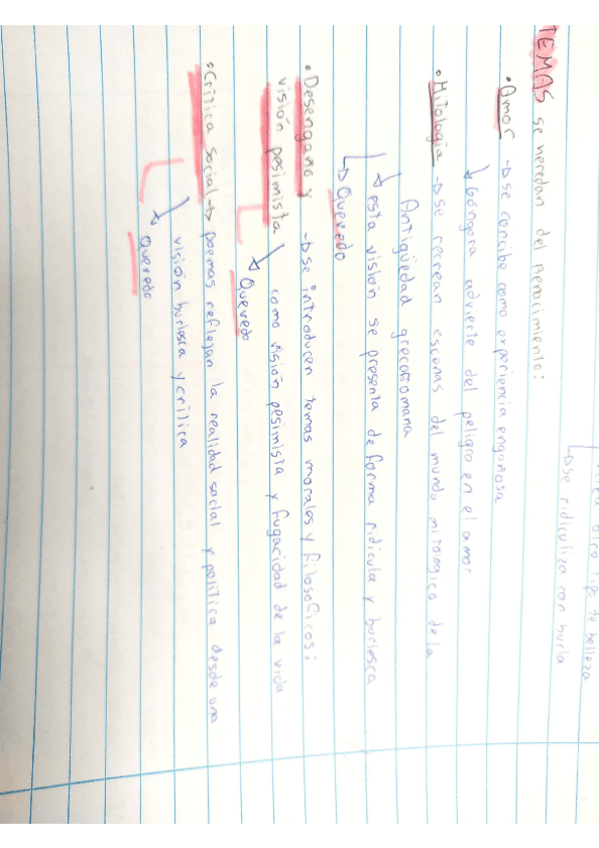 otro tipo de belleza
↳ se ridiculiza con burla
TEMAS se heredan del Renacimiento:
• Amor → se concibe como experiencia engañosa
↳ Góngora advierte del peligro en el amor
• Mitología → se recrean escenas del mundo mitologico de la
Antigüedad grecorromana
↳ esta visión se presenta de forma ridícula y burlesca
↳ Quevedo
• Desengano y → se introducen temas morales y filosoficos:
visión pesimista como visión pesimista y fugacidad de la vida.
↳ Quevedo
• Crítica social → poemas reflejan la realidad social y política desde una
visión burlesca y crítica
↳ Quevedo